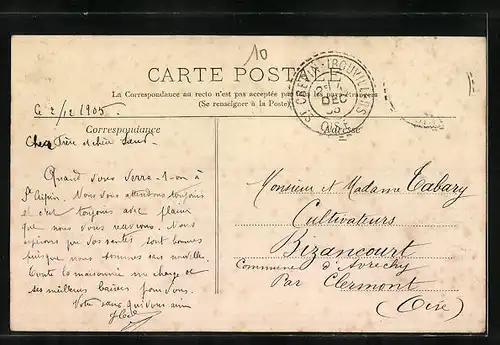 10
CARTE POSTALE
La Correspondance au recto n'est pas acceptée par tous les pays étrangers
(Se renseigner à la Poste)
Ce 2/12 1905
Correspondance
Adresse
DEC
OISE
Cher Frère et chère Sœur
Quand vous verra-t-on à
St Crépin. Nous vous attendons toujours
et c'est toujours avec plaisir
que nous vous reverrons. Nous
espérons que vos santés sont bonnes
puisque nous sommes sans nouvelle.
Toute la maisonnée me charge de
ses meilleurs baisers pour vous.
Votre sœur qui vous aime
Monsieur et Madame Tabary
Cultivateurs
Bizancourt
Commune d'Avrechy
Par Clermont
(Oise)